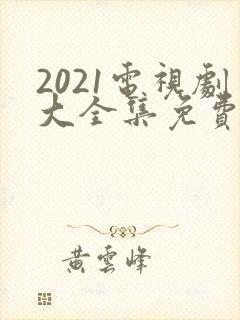 2021電視劇
大全集免費
黃雲峰